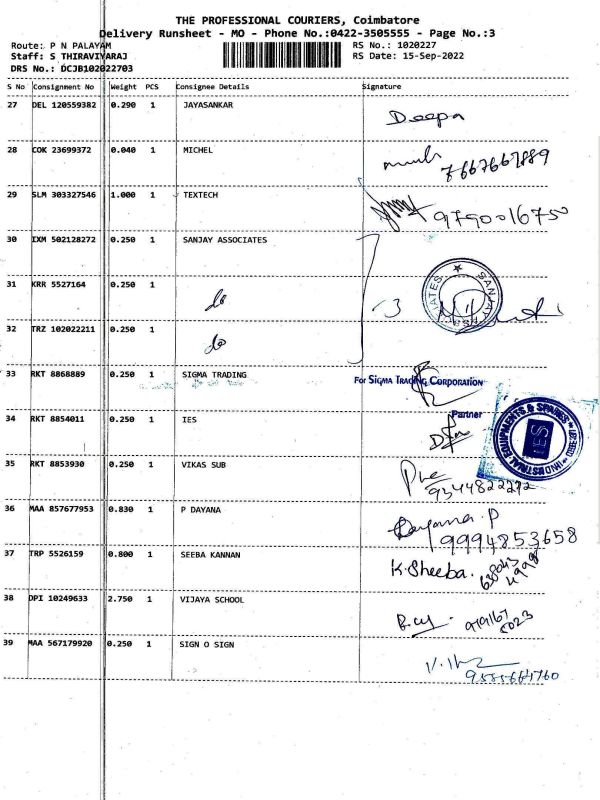 THE PROFESSIONAL COURIERS, Coimbatore
Delivery Runsheet - MO - Phone No.:0422-3505555 - Page No.:3
Route: P N PALAYAM RS No.: 1020227
Staff: S THIRAVIYARAJ RS Date: 15-Sep-2022
DRS No.: DCJB102022703
S No Consignment No Weight PCS Consignee Details Signature
27 DEL 120559382 0.290 1 JAYASANKAR Deepa
28 COK 23699372 0.040 1 MICHEL 7667667889
29 SLM 303327546 1.000 1 TEXTECH 9790016750
30 IXM 502128272 0.250 1 SANJAY ASSOCIATES
31 KRR 5527164 0.250 1 do
32 TRZ 102022211 0.250 1 do
33 RKT 8868889 0.250 1 SIGMA TRADING For SIGMA TRADING CORPORATION
Partner
34 RKT 8854011 0.250 1 IES
IES
35 RKT 8853930 0.250 1 VIKAS SUB 9344822272
36 MAA 857677953 0.830 1 P DAYANA Dayana.P
9994853658
37 TRP 5526159 0.800 1 SEEBA KANNAN K.Sheeba.
38 DPI 10249633 2.750 1 VIJAYA SCHOOL
39 MAA 567179920 0.250 1 SIGN O SIGN